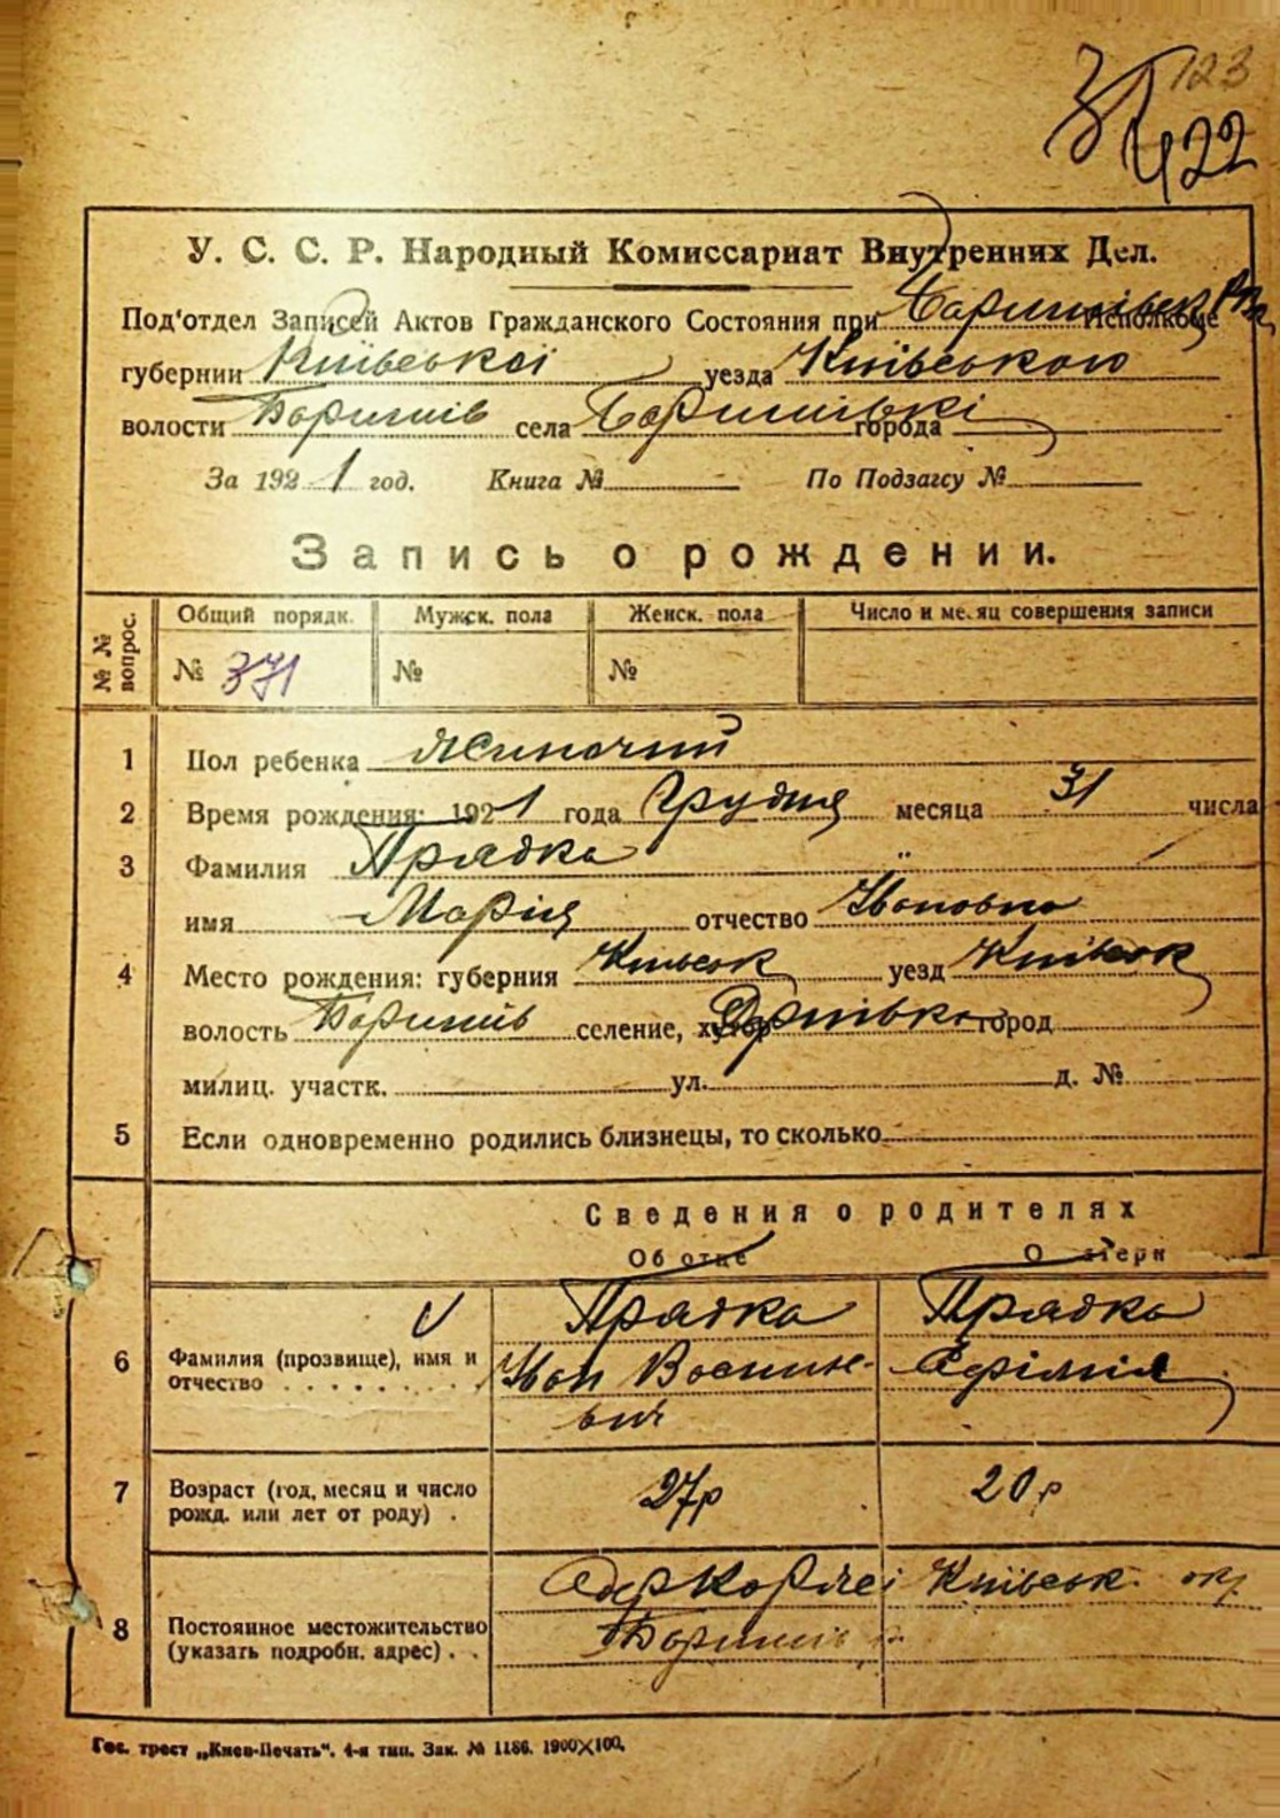 123
422
У. С. С. Р. Народный Комиссариат Внутренних Дел.
Под'отдел Записей Актов Гражданского Состояния при Исполкоме
губернии Київської уезда Київського
волости Баришів села города
За 1921 год. Книга № По Подзагсу №
Запись о рождении.
№ № вопрос. Общий порядк. Мужск. пола Женск. пола Число и месяц совершения записи
№ 371 № №
1 Пол ребенка жиночий
2 Время рождения: 1921 года Грудня месяца 31 числа
3 Фамилия Прядка
имя Марія отчество Ивановна
4 Место рождения: губерния Київськ уезд Київськ
волость Баришів селение, хутор город
милиц. участк. ул. д. №
5 Если одновременно родились близнецы, то сколько
Сведения о родителях
Об отце О матери
6 Фамилия (прозвище), имя и отчество Прядка Иван Васильевич Прядка Єфімія
7 Возраст (год, месяц и число рожд. или лет от роду) . 27р 20р
8 Постоянное местожительство (указать подробн. адрес) . . Київськ. окр.
Баришів р.
Гос. трест „Киев-Печать“. 4-я тип. Зак. № 1186. 1900×100.